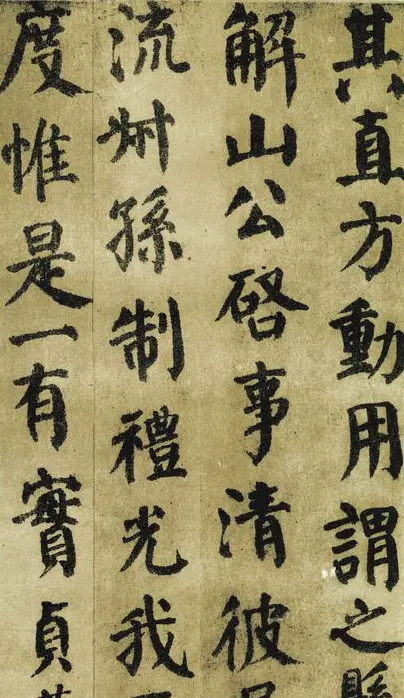 其直方動用謂之縣
解山公啓事清彼
流叔孫制禮光我
度惟是一有實貞